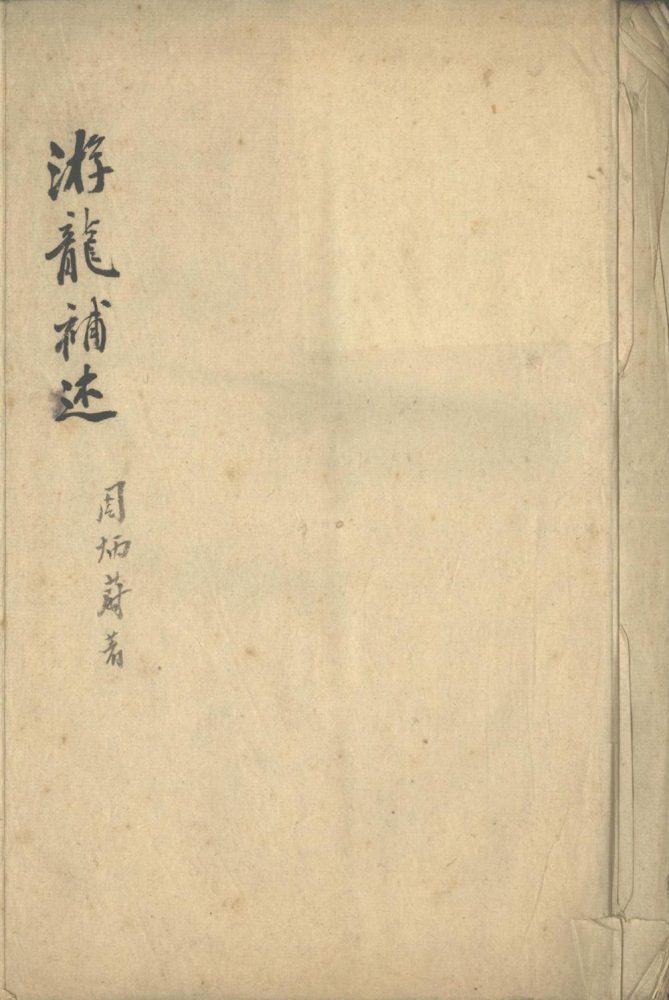 游龍補述
周炳蔚著